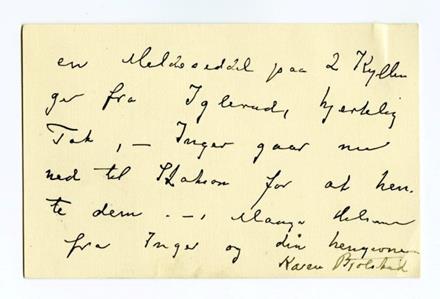 en Meldeseddel paa 2 Kyllin
ger fra Iglerud, hjertelig
Tak, – Inger gaar nu
ned til Station for at hen.
te dem. –, Mange Hilsener
fra Inger og din hengivne
Karen Bjølstad